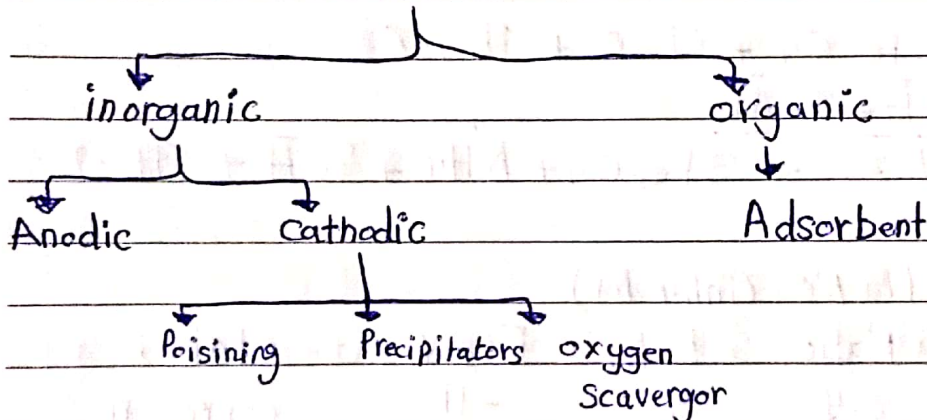 inorganic organic
Anodic Cathodic Adsorbent
Poisining Precipitators oxygen
scavergor